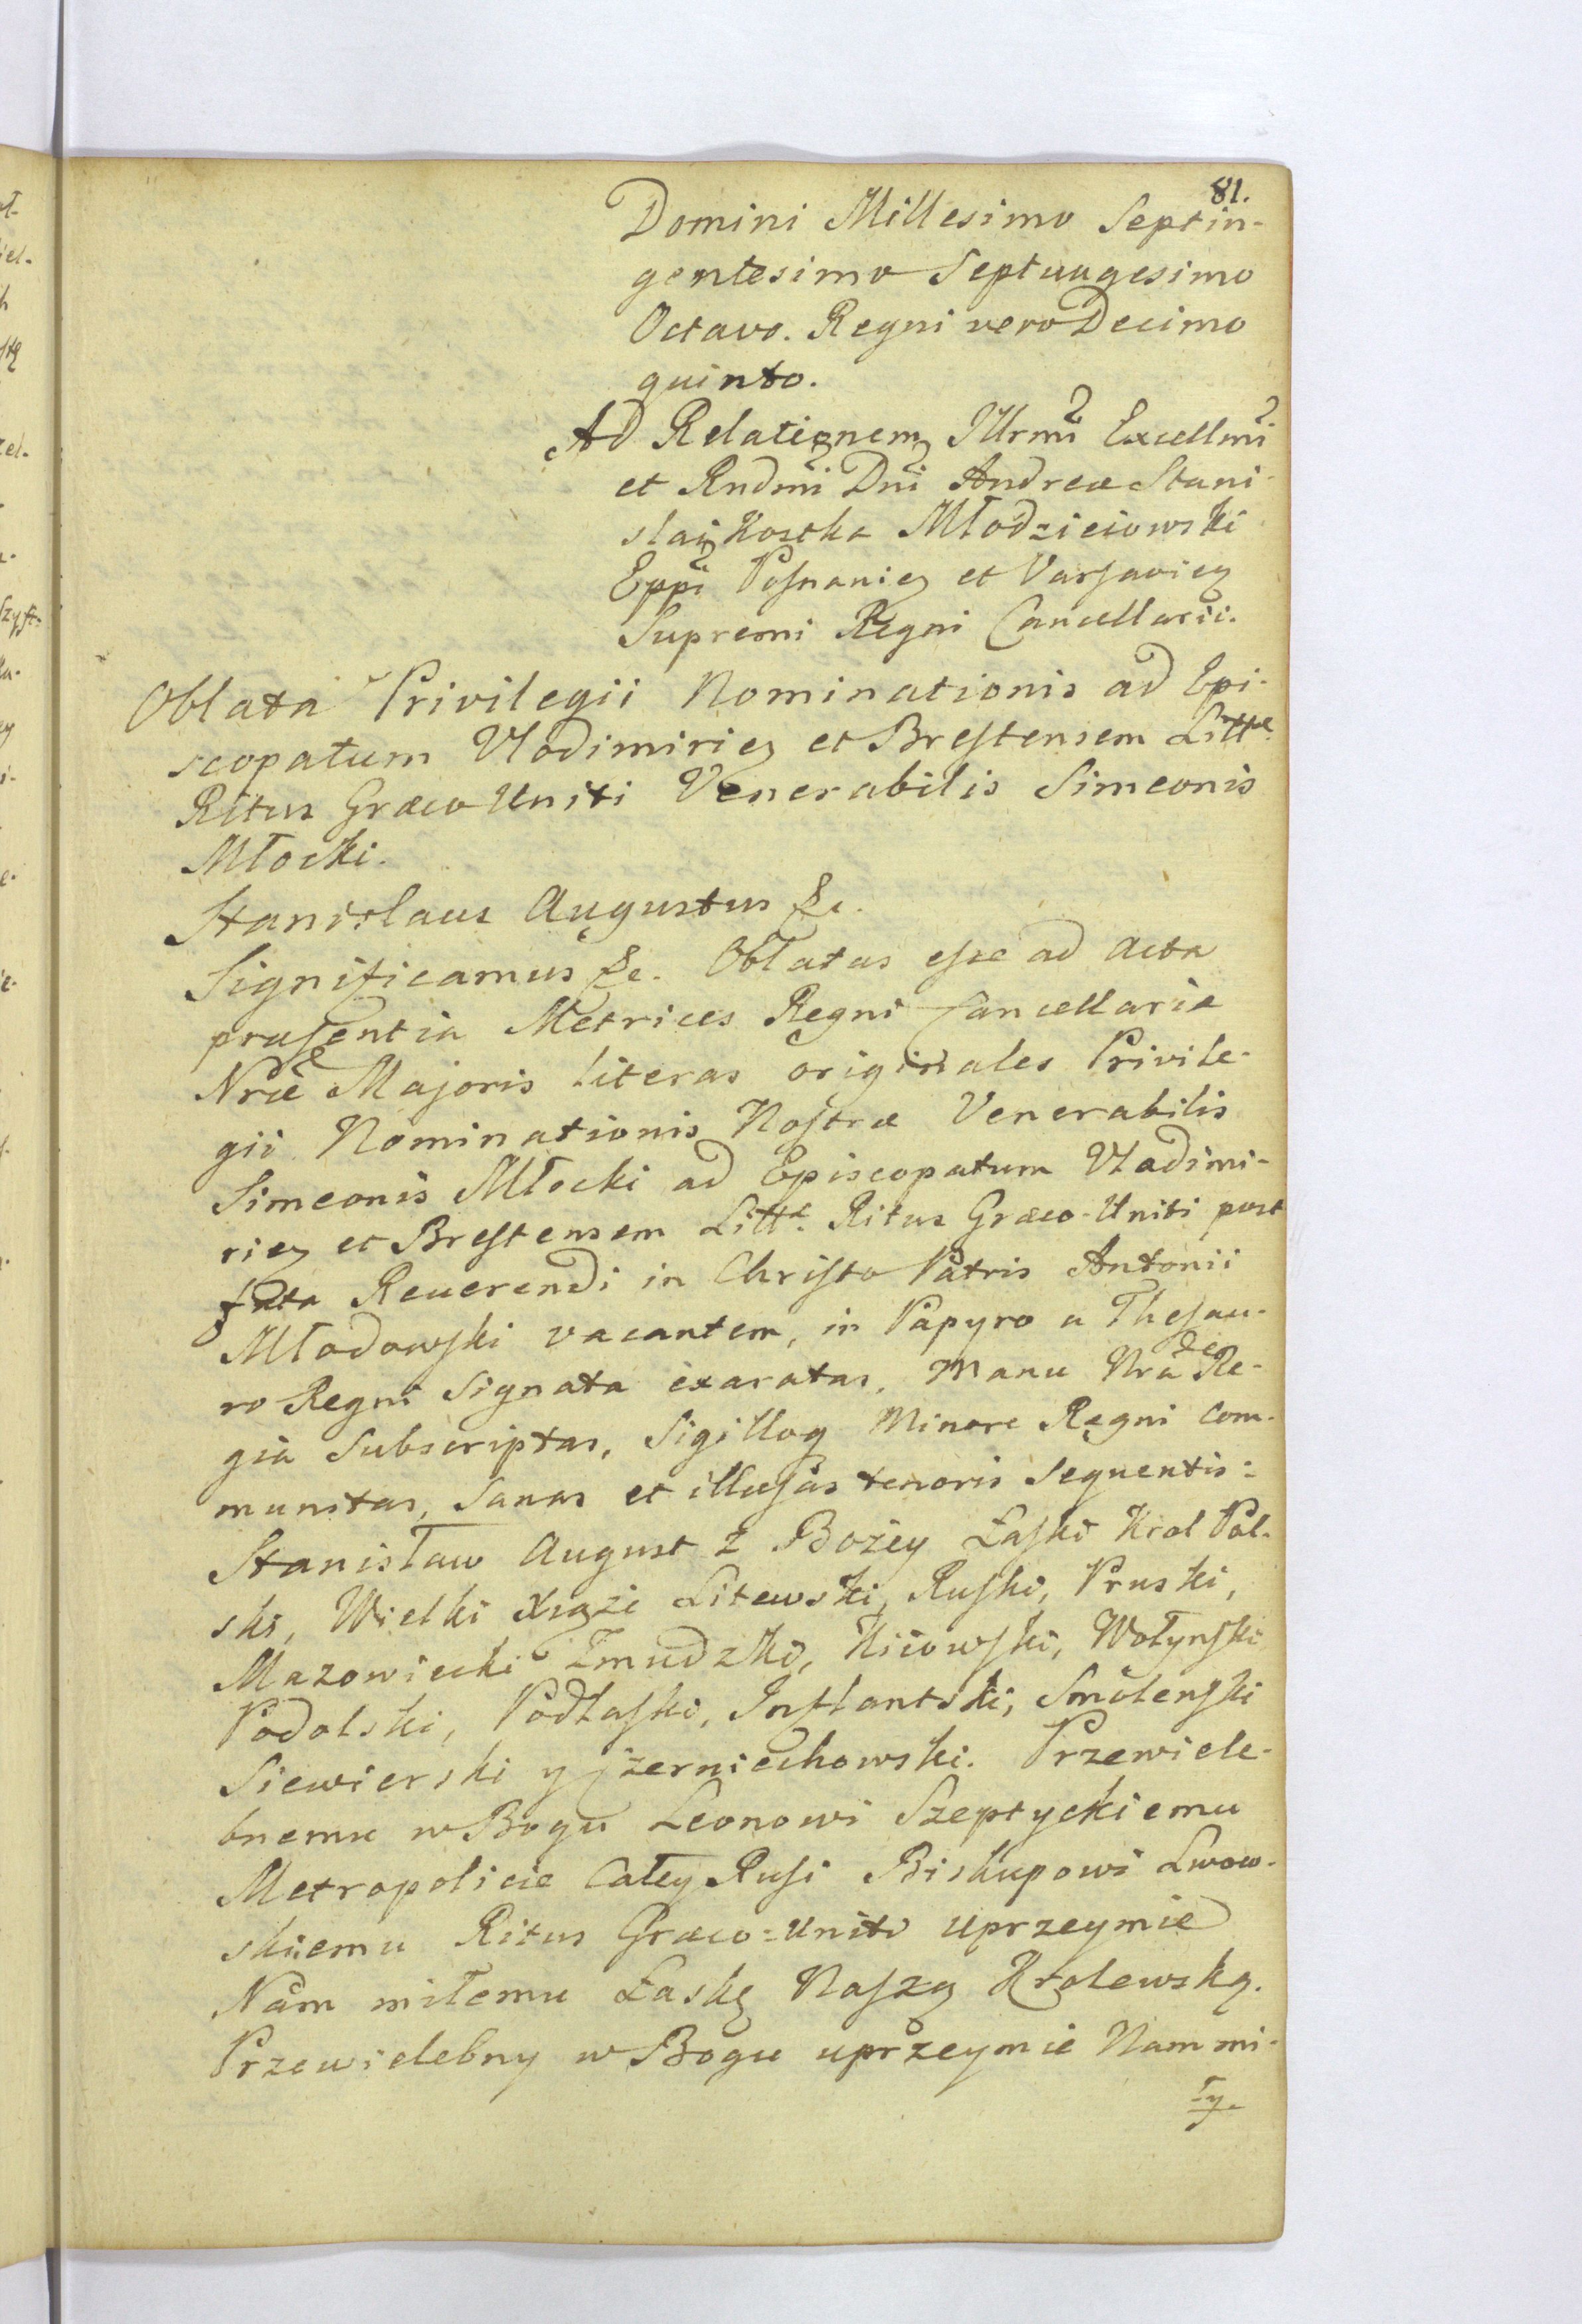 81.
Domini Millesimo Septin-
gentesimo Septuagesimo
Octavo. Regni vero Decimo
quinto.
Ad Relationem Illrmi Excellmi
et Rndmi Dni Andreæ Stani-
slai Kostka Młodzieiowski
Eppi Posnanien et Varsavien
Supremi Regni Cancellarii.
Oblata Privilegii Nominationis ad Epi-
scopatum Vlodimirien et Brestensem Littæ
Ritus Græco Uniti Venerabilis Simeonis
Młocki.
Stanislaus Augustus &c.
Significamus &c. Oblatas esse ad Acta
præsentia Metrices Regni Cancellariæ
Nræ Majoris literas originales Privile-
gii Nominationis Nostræ Venerabilis
Simeonis Młocki ad Episcopatum Vladimi-
rien et Brestensem Littæ Ritus Græco-Uniti post
fata Reverendi in Christo Patris Antonii
Młodowski vacantem, in Papyro a Thesau-
ro Regni Signata exaratas, Manu Nra Re-
gia Subscriptas, Sigilloq Minore Regni com-
munitas, Sanas et illæsas tenoris sequentis:
Stanisław August z Bożey Łaski Krol Pol-
ski, Wielki Xiąże Litewski, Ruski, Pruski,
Mazowiecki Zmudzki, Kiiowski, Wołynski
Podolski, Podlaski, Inflantski, Smolenski
Siewierski y Czerniechowski. Przewiele-
bnemu w Bogu Leonowi Szeptyckiemu
Metropolicie Całey Rusi Biskupowi Lwow-
skiemu Ritus Græco=Uniti uprzeymie
Nam miłemu Łaskę Naszą Krolewską.
Przewielebny w Bogu uprzeymie Nam mi-
ły.